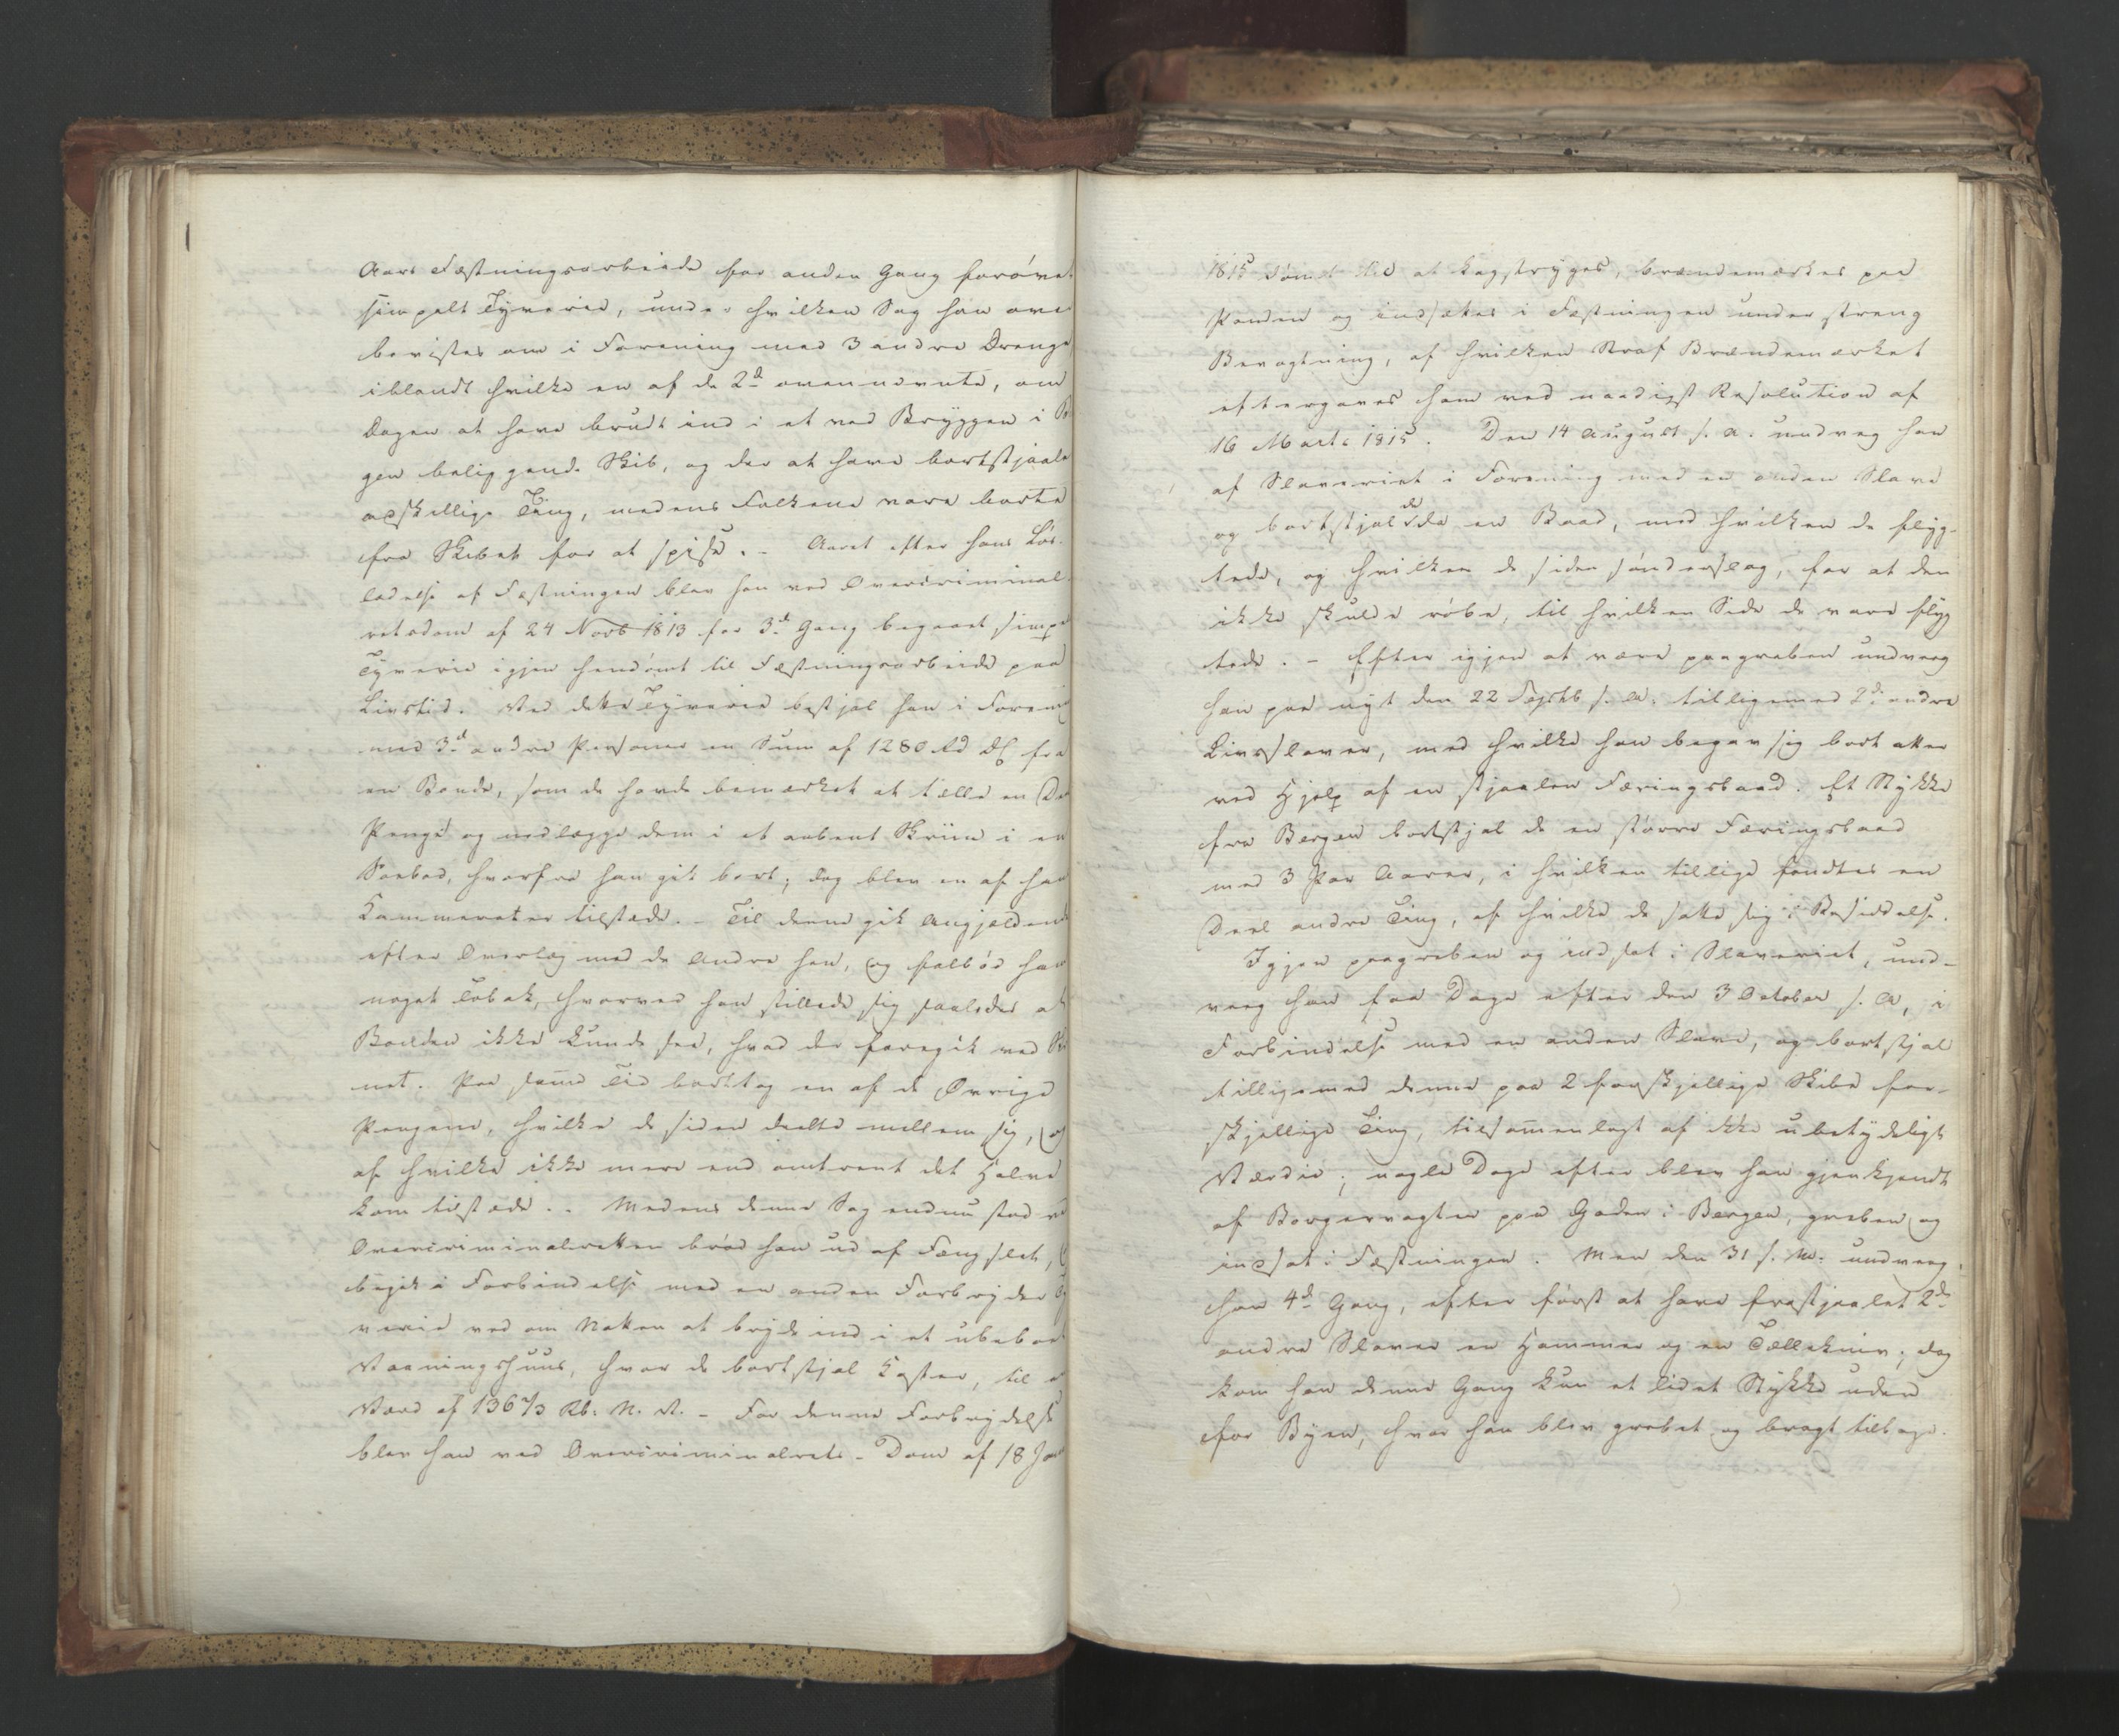 Aars Fæstningsarbeide for anden Gang forøvet
simpelt Tyverie, under hvilken Sag han over
bevistes om i Forening med 3 andre Drenge
iblandt hvilke en af de 2de ovennævnte, om
Dagen at have brudt ind i et ved Bryggen i B
gen beliggende Skib, og der at have bortstjaale
adskillige Ting, medens Folkene vare borte
fra Skibet for at spise. - Aaret efter hans Løs-
ladelse af Fæstningen blev han ved Overcriminal-
retsdom af 24 Novb 1813 for 3de Gang begaaet simpe
Tyverie igjen hendømt til Fæstningsarbeide paa
Livstid. Ved dette Tyverie bestjal han i Foreni
med 3de andre Personer en Sum af 1280 Rd DC fra
en Bonde, som de havde bemærket at tælle en De
Penge og nedlægge dem i et aabent Skriin i en
Søebod, hvorfra han gik bort; dog blev en af han
Kammerater tilstæde. - Til denne gik Angjældend
efter Overlæg med de Andre hen, og falbød ham
noget Tobak, hvorved han stillede sig saaledes at
Bonden ikke kunde see, hvad der foregik ved Skri
net. Paa samme Tid borttog en af de Øvrige
Pengene, hvilke de siden deelte mellem sig, og
af hvilke ikke mere end omtrent det Halve
kom tilstæde. - Medens denne Sag endnu stod ve
Overcriminalretten brød han ud af Fængslet,
begik i Forbindelse med en anden Forbryder Ty
verie ved om Natten at bryde ind i et ubeboet
Vaaningshuus, hvor de bortstjal Koster, til e
Værd af 136 2/3 Rb: N. V. - For denne Forbrydelse
blev han ved Overcriminalrets-Dom af 18 Jan
1815 dømt til at kagstryges, brændemærkes paa
Panden og indsættes i Fæstningen under streng
Bevogtning, af hvilken Straf Brændemærket
eftergaves ham ved naadigst Resolution af
16 Marts 1815. Den 14 August s. A. undveg han
af Slaveriet i Forening med en anden Slave
og bortstjal de en Baad, med hvilken de flyg-
tede, og hvilken de siden sønderslog, for at den
ikke skulde røbe, til hvilken Side de vare flyg
tede. - Efter igjen at være paagreben undveeg
han paa nyt den 22 Septb s. A. tilligemed 2de andre
Livsslaver, med hvilke han begav sig bort atter
ved Hjelp af en stjaalen Færingsbaad. Et Stykke
fra Bergen bortstjal de en større Færingsbaad
med 3 Par Aarer, i hvilken tillige fandtes en
Deel andre Ting, af hvilke de satte sig i Besiddelse.
Igjen paagreben og indsat i Slaveriet, und-
veeg han faa Dage efter den 3 October s. A, i
Forbindelse med en anden Slave, og bortstjal
tilligemed denne paa 2 forskjellige Skibe for-
skjellige Ting, tilsammenlagt af ikke ubetydeligt
Værdie; nogle Dage efter blev han gjenkjendt
af Borgervagten paa Gaden i Bergen, greben og
indsat i Fæstningen. Men den 31 s. M. undveeg
han 4de Gang, efter først at have frastjaalet 2de
andre Slaver en Hammer og en Tællekniv; dog
kom han denne Gang kun et lidet Stykke uden
for Byen, hvor han blev grebet og bragt tilbage.